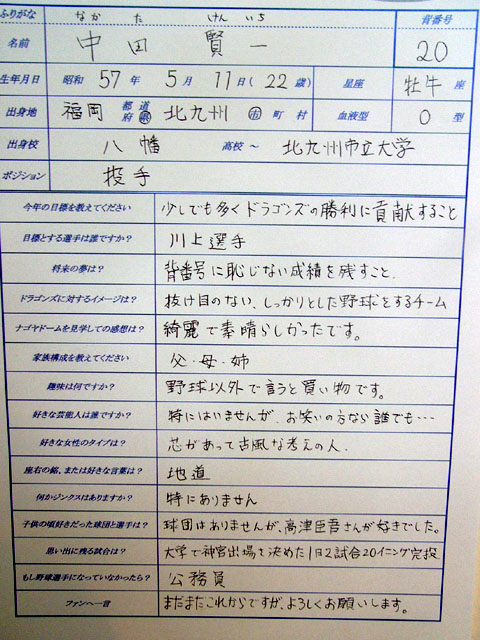 ふりがな なかた けんいち 背番号
名前 中田 賢一 20
生年月日 昭和 57 年 5 月 11 日 ( 22 歳 ) 星座 牡牛 座
出身地 福岡 都道府県 北九州 市町村 血液型 O 型
出身校 八幡 高校 〜 北九州市立大学
ポジション 投手
今年の目標を教えてください 少しでも多くドラゴンズの勝利に貢献すること
目標とする選手は誰ですか? 川上選手
将来の夢は? 背番号に恥じない成績を残すこと.
ドラゴンズに対するイメージは? 抜け目のない、しっかりとした野球をするチーム
ナゴヤドームを見学しての感想は? 綺麗で素晴らしかったです。
家族構成を教えてください 父・母・姉
趣味は何ですか? 野球以外で言うと買い物です。
好きな芸能人は誰ですか? 特にはいませんが、お笑いの方なら誰でも・・・
好きな女性のタイプは? 芯があって古風な考えの人.
座右の銘、または好きな言葉は? 地道
何かジンクスはありますか? 特にありません
子供の頃好きだった球団と選手は? 球団はありませんが、高津臣吾さんが好きでした。
思い出に残る試合は? 大学で神宮出場を決めた1日2試合20イニング完投
もし野球選手になっていなかったら? 公務員
ファンへ一言 まだまだこれからですが、よろしくお願いします。